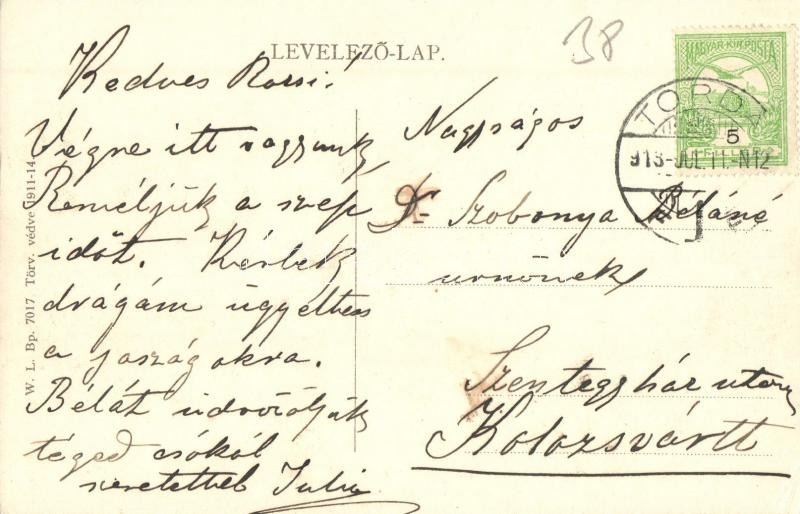 LEVELEZŐ-LAP.
38
Kedves Rózsi!
Végre itt vagyunk
Reméljük a szép
időt. Kérlek
drágám ügyelhess
a jószágokra.
Bélát üdvözöljük
téged csókol
szeretettel Julia
W. L. Bp. 7017 Törv. védve 1911-14
MAGYAR KIR. POSTA
5
FILLÉR
TORDA
913-JUL 11-N12
Nagyságos
Dr Szobonya Béláné
urnőnek
Szentegyház utca
Kolozsvártt